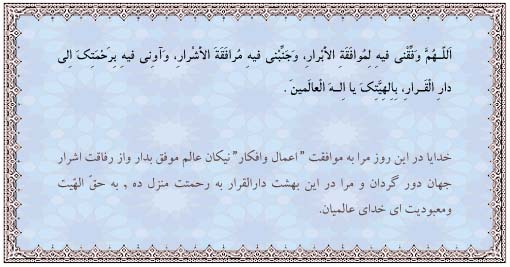 اَللّـهُمَّ وَفِّقْنی فیهِ لِمُوافَقَةِ الاَْبْرارِ، وَجَنِّبْنی فیهِ مُرافَقَةَ الاَْشْرارِ، وَآوِنی فیهِ بِرَحْمَتِکَ اِلی
دارِ الْقَـرارِ، بِاِلهِیَّتِکَ یا اِلـهَ الْعالَمینَ .
خدایا در این روز مرا به موافقت " اعمال وافکار" نیکان عالم موفق بدار واز رفاقت اشرار
جهان دور گردان و مرا در این بهشت دارالقرار به رحمتت منزل ده , به حقّ الهّیت
ومعبودیت ای خدای عالمیان.